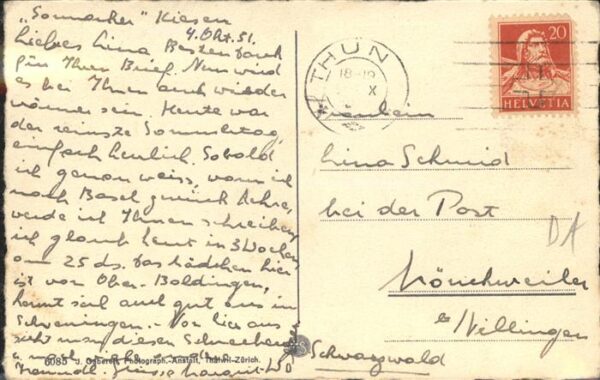 "Sonnacker" Kiesen
4. Okt. 31.
Liebes Lina Besten Dank
für Ihren Brief. Nun wird
es bei Ihnen auch wieder
wärmer sein. Heute war
der reinste Sommertag,
einfach herrlich. Sobald
ich genau weiss, wann ich
nach Basel zurück kehre,
werde ich Ihnen schreiben,
ich glaub heut in 3 Wochen
am 25 ds. Das Mädchen hier
ist von Ober-Baldingen,
kennt sich auch gut aus in
Schwenningen. Von hier aus
sieht man diesen
Freundl. Grüsse
6085 J. Gaberell, Photograph.-Anstalt, Thalwil-Zürich.
THUN
18-19
X
20
HELVETIA
Fräulein
Lina Schmid
bei der Post
Mönchweiler
b/ Villingen
Schwarzwald
DA